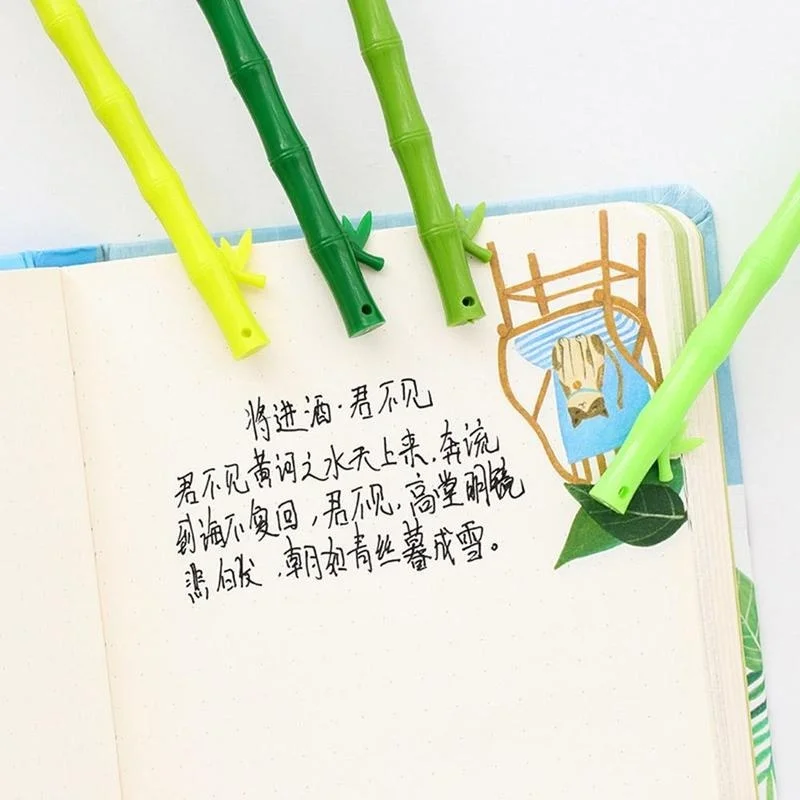 将进酒·君不见
君不见黄河之水天上来,奔流
到海不复回,君不见,高堂明镜
悲白发,朝如青丝暮成雪。